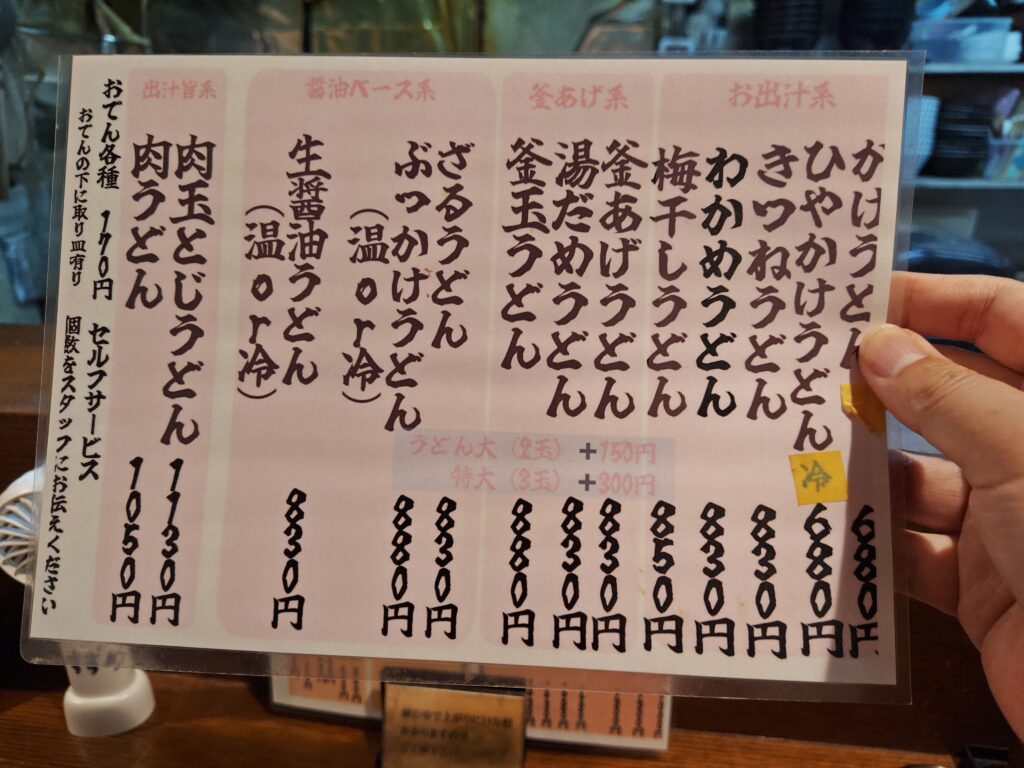 お出汁系
かけうどん 680円
ひやかけうどん 冷 680円
きつねうどん 830円
わかめうどん 830円
梅干しうどん 850円
釜あげ系
釜あげうどん 830円
湯だめうどん 830円
釜玉うどん 880円
うどん大(2玉)+150円
特大(3玉)+300円
醤油ベース系
ざるうどん 830円
ぶっかけうどん 880円
(温or冷)
生醤油うどん 830円
(温or冷)
出汁旨系
肉玉とじうどん 1130円
肉うどん 1050円
おでん各種 170円 セルフサービス
おでんの下に取り皿有り 個数をスタッフにお伝えください